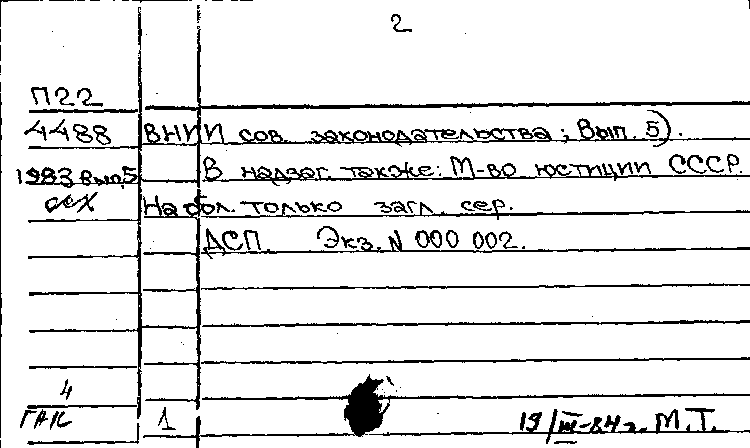 2
П22
4488 ВНИИ сов. законодательства; Вып. 5).
1983 Вып.5 В надзаг. также: М-во юстиции СССР.
На обл. только загл. сер.
ДСП. Экз. N 000 002.
4
ГАК 1 19/III-84г. М.Т.